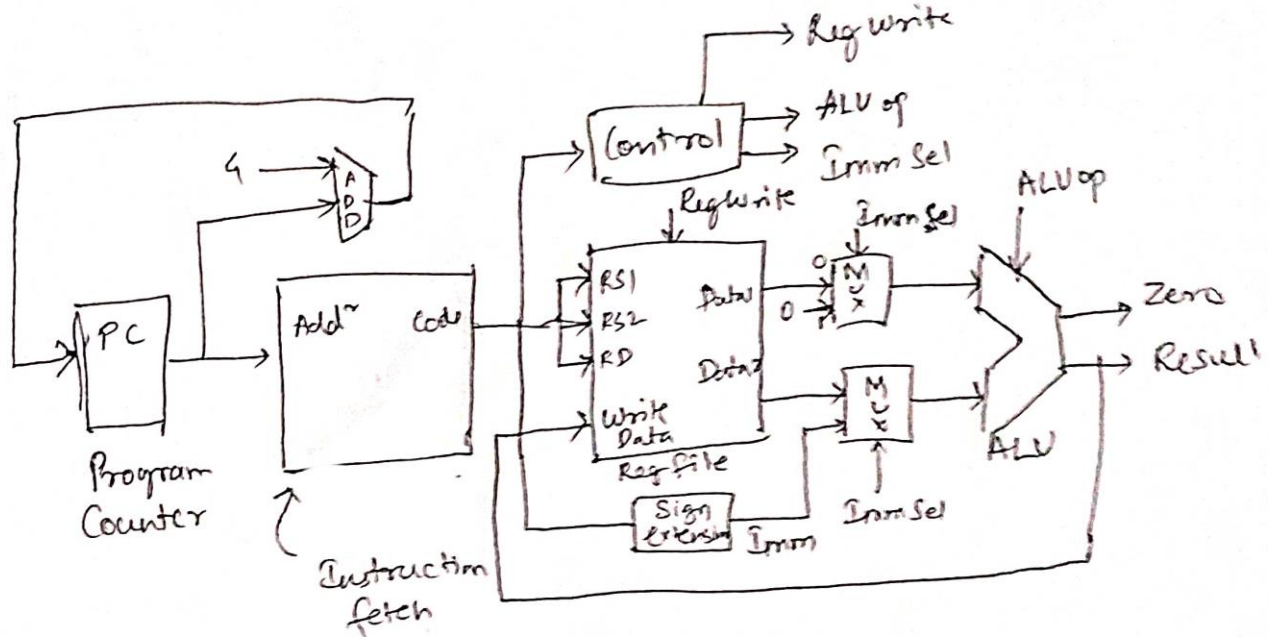 Reg Write
Control
ALU op
Imm Sel
4
A
D
D
Reg Write
Imm Sel
ALU op
PC
Addr
Code
RS1
RS2
RD
Write
Data
Data1
Data2
Reg file
0
0
1
M
U
X
M
U
X
Zero
Result
ALU
Program
Counter
Sign
extension
Imm
Imm Sel
Instruction
fetch